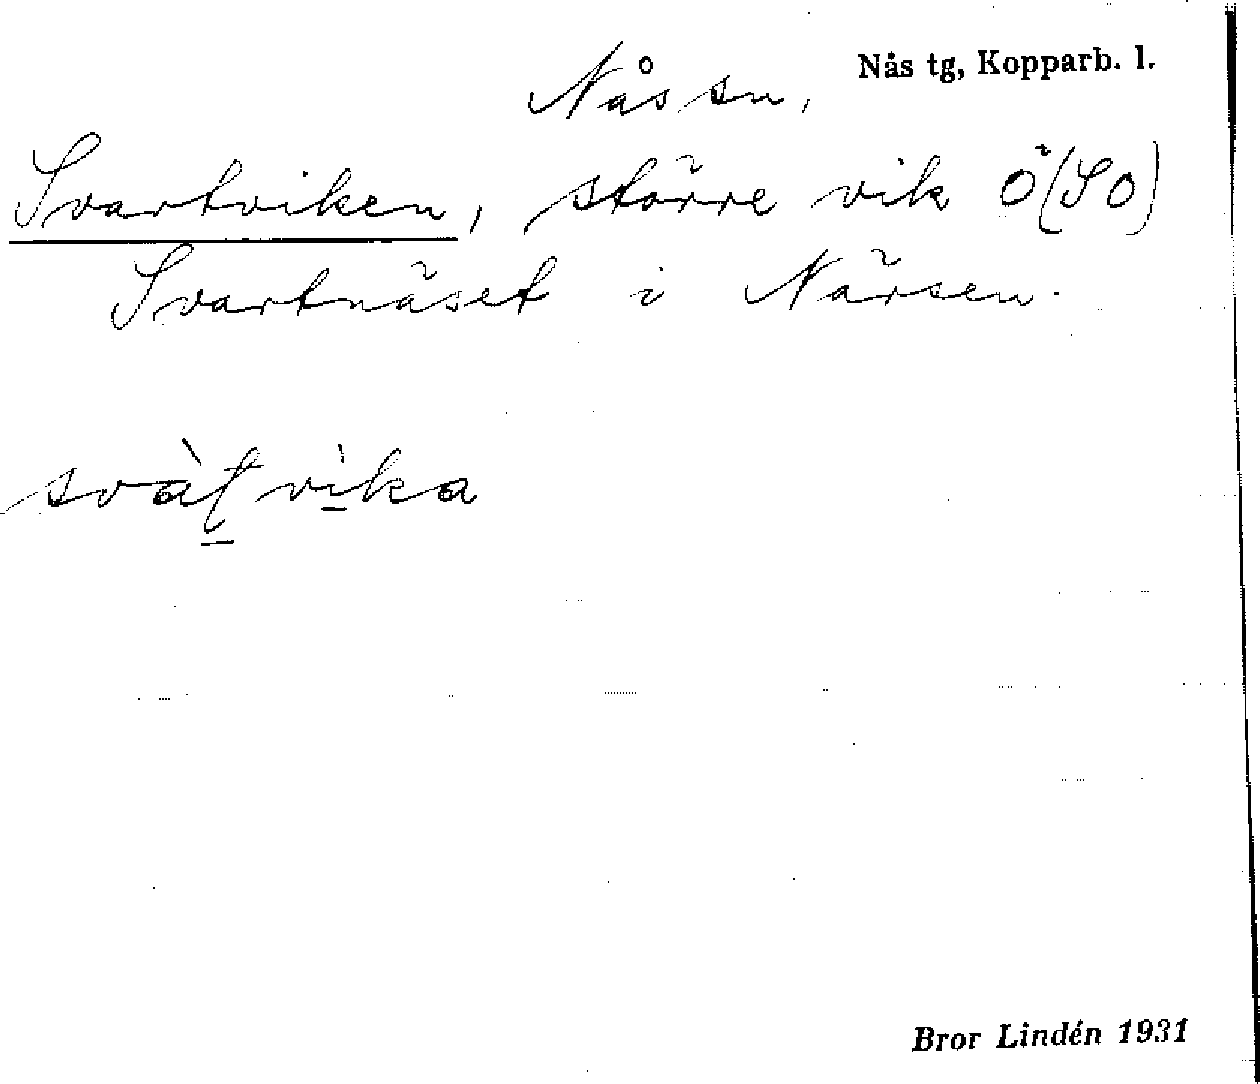 Nås sn, Nås tg, Kopparb. l.
Svartviken, större vik Ö (SO)
Svartnäset i Närsen.
svàt̠ vi̠̍ka
Bror Lindén 1931